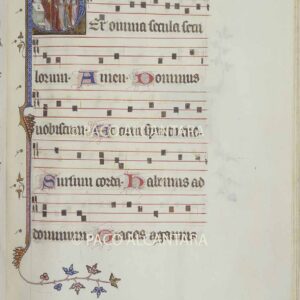 Per omnia secula secu
lorum Amen Dominus
vobiscum Et cum spiritu
Sursum corda Habemus ad
dominum Gracias agamus
© PACO ALCÁNTARA